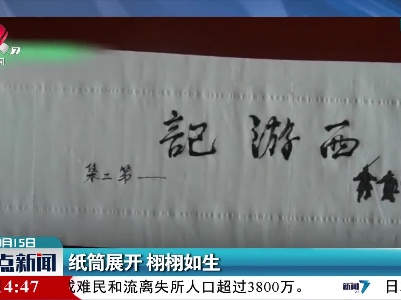 西游記
第二集
月15日
点新闻
纸筒展开 栩栩如生
14:47
难民和流离失所人口超过3800万。
新闻